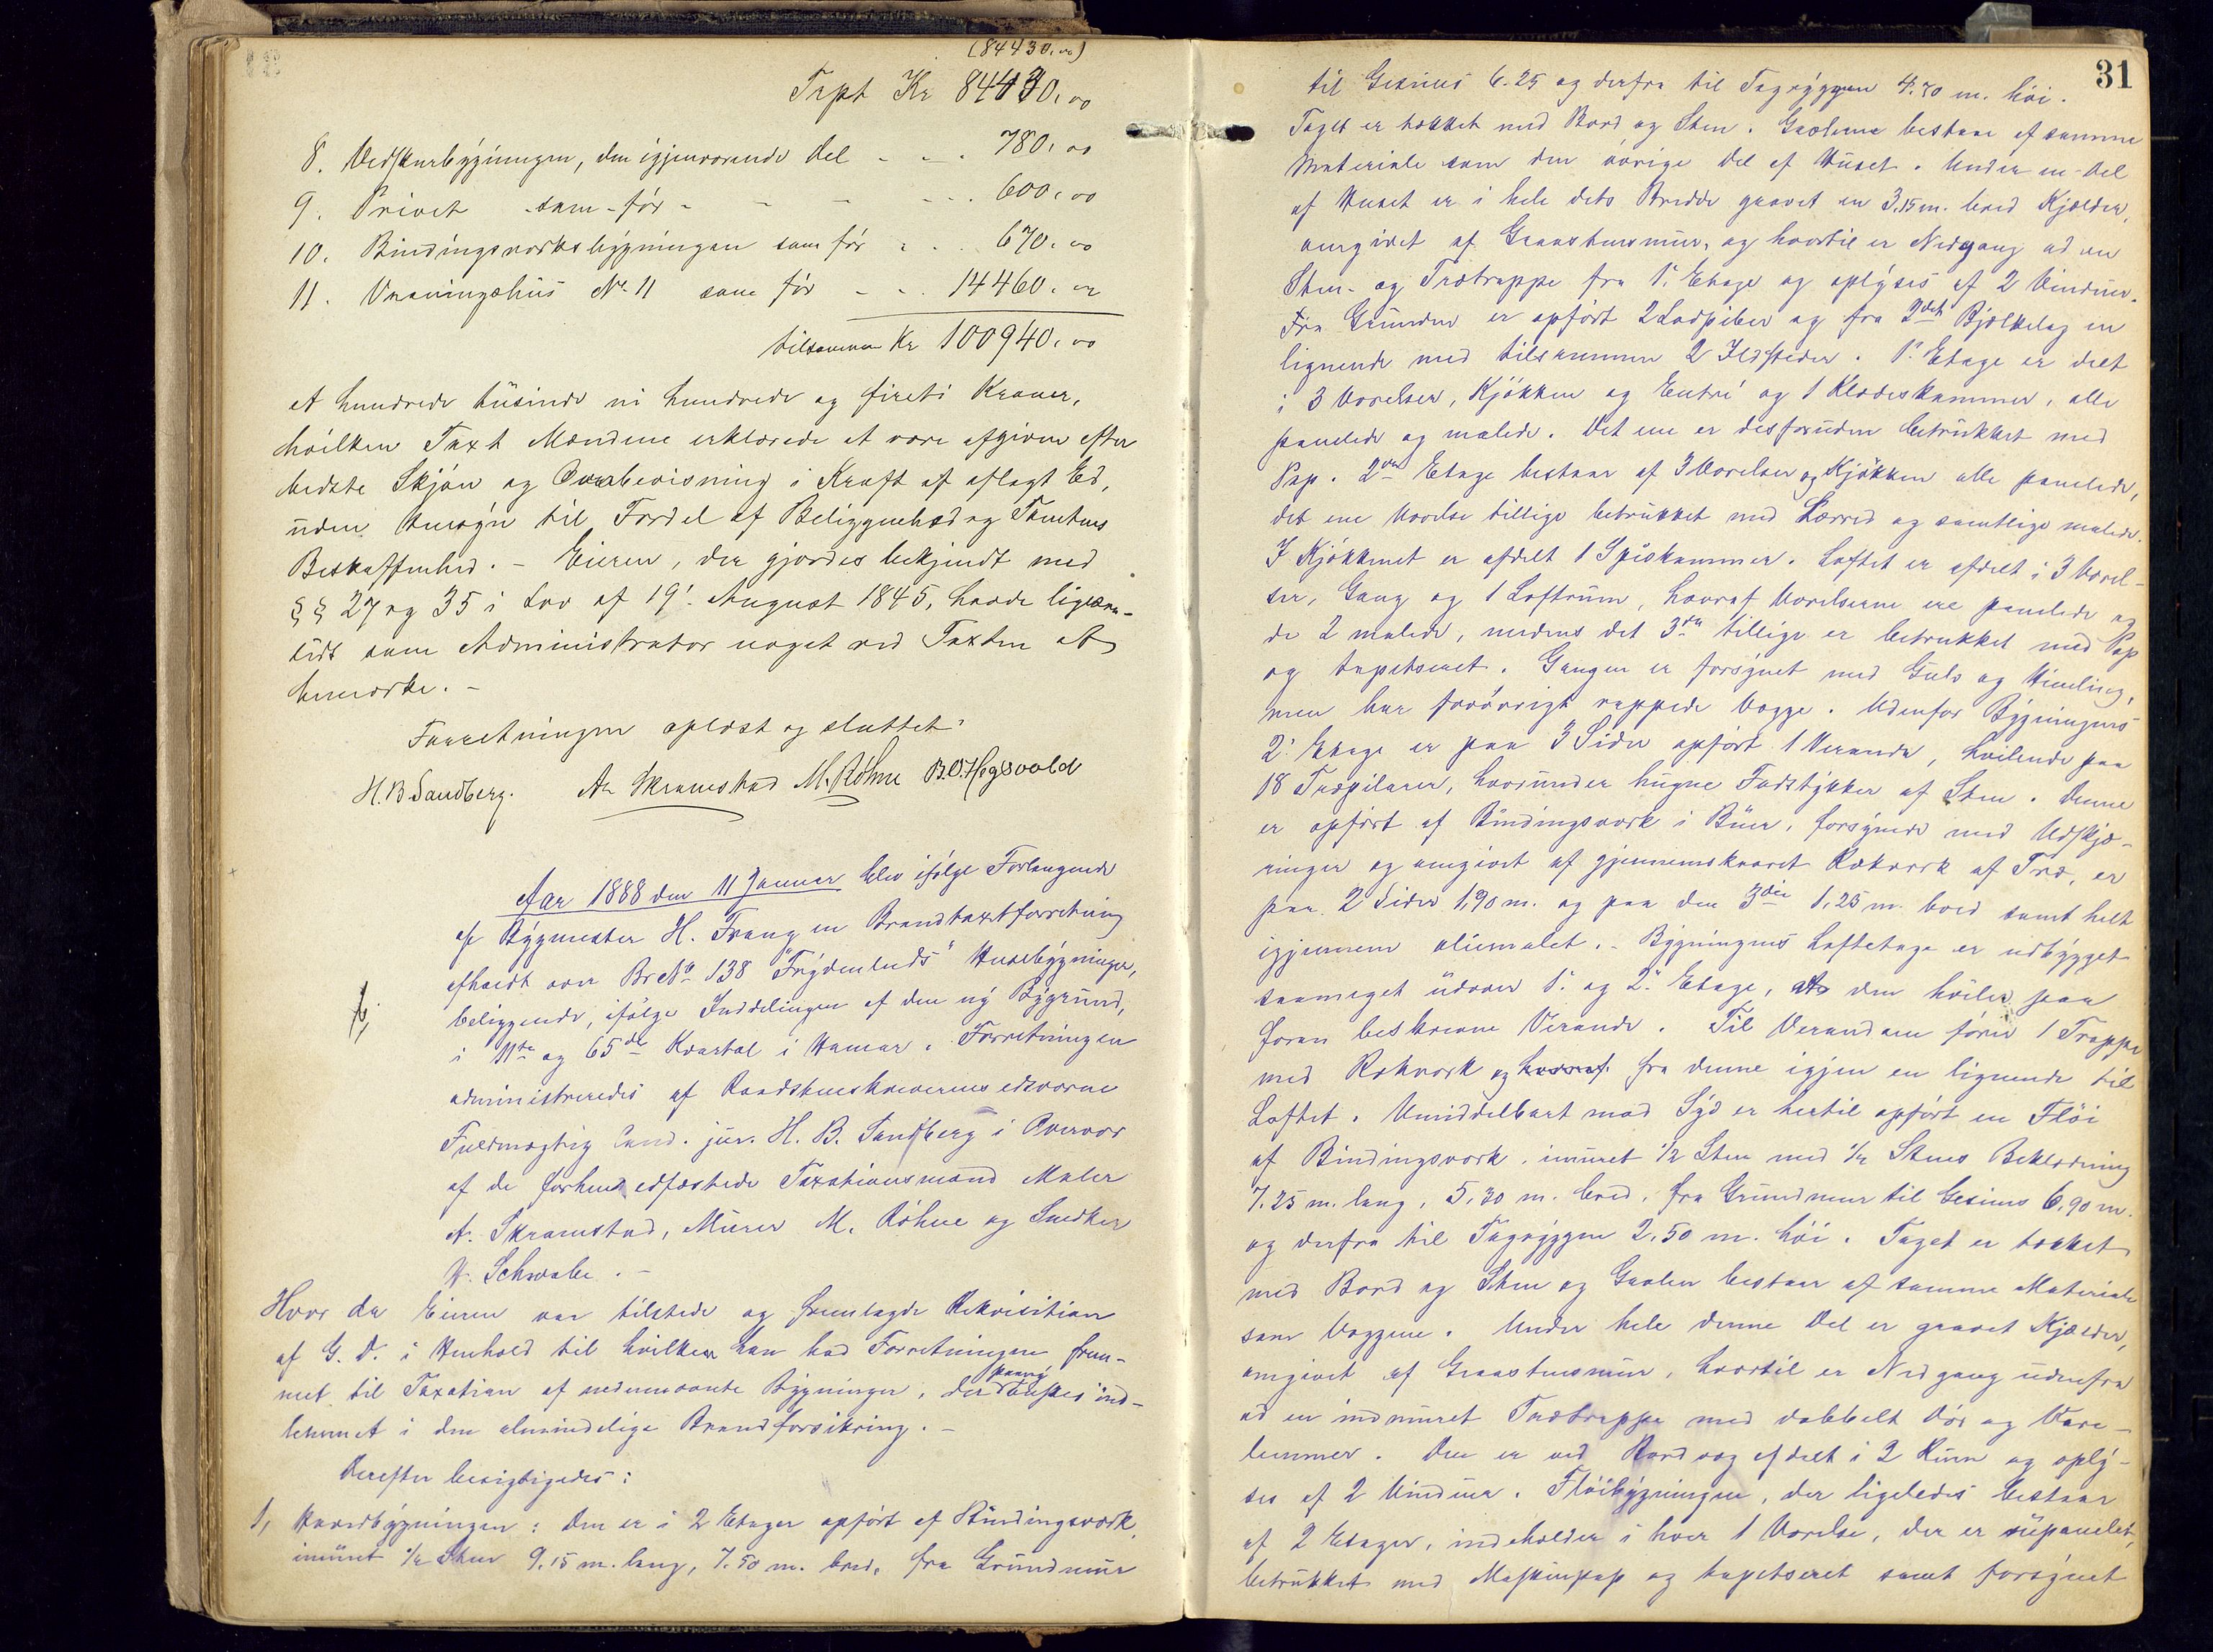 (84430.00)
Trpt Kr 84430.00
8. Vedskurbygningen, den igjenværende Del - - . 780.00
9. Privet - som - før - - - - - . 600.00
10. Bindingsværksbygningen som før - . . 670.00
11. Vaaningshus No 11 som før - - . 14460.00
tilsammen Kr 100940.00
et hundrede tusinde ni hundrede og firti Kroner,
hvilken Taxt Mændene erklærede at være afgiven efter
bedste Skjøn og Overbevisning i Kraft af aflagt Ed,
uden Hensyn til Fordel af Beliggenhed og Tomtens
Beskaffenhed. - Eieren, der gjordes bekjendt med
§§ 27 og 35 i Lov af 19. August 1845, havde ligesaa-
lidt som Administrator noget ved Taxten at
bemærke. -
Forretningen oplæst og sluttet.
H. B. Sandberg. A. Skramstad M. Röhne B. O. Hegsvold
Aar 1888 den 11 Januar blev ifølge Forlangende
af Bygmester H. Frang en Brandtaxtforretning
afholdt over Br No 138 "Frydenlunds" Husebygninger,
beliggende, ifølge Inddelingen af den ny Bygrund,
i 11te og 65de Kvartal i Hamar. Forretningen
administreredes af Raadstueskriverens edsvorne
Fuldmægtig Cand. jur. H. B. Sandberg i Overvær
af de forhen edfæstede Taxationsmænd Maler
A. Skramstad, Murer M. Röhne og Snedker
W. Schwabe. -
Hvor da Eieren var tilstede og fremlagde Rekvisition
af G. D. i Henhold til hvilken han bad Forretningen frem-
met til Taxation af nedennævnte Bygninger, der paany ønskes ind-
lemmet i den almindelige Brandforsikring. -
Derefter besigtigedes:
1, Hovedbygningen: Den er i 2 Etager opført af Bindingsværk,
imuret 1/2 Sten 9.15 m. lang, 7.50 m. bred, fra Grundmur
31
til Gesims 6.25 og derfra til Tagryggen 4.70 m. høi.
Taget er tækket med Bord og Sten. Gavlerne bestaar af samme
Materiale som den øvrige Del af Huset. Under en Del
af Huset er i hele dets Bredde gravet en 3,15 m. bred Kjælder,
omgivet af Graastensmur, og hvortil er Nedgang ad en
Sten- og Trætrappe fra 1. Etage og oplyses af 2 Vinduer.
Fra Grunden er opført 2 Lodpiber og fra 2det Bjælkelag en
lignende med tilsammen 2 Ildsteder. 1. Etage er delt
i 3 Værelser, Kjøkken og Entré og 1 Klædeskammer, alle
panelede og malede. Det ene er desforuden betrukket med
Pap. 2den Etage bestaar af 3 Værelser og Kjøkken alle panelede,
det ene Værelse tillige betrukket med Lærred og samtlige malede.
I Kjøkkenet er afdelt 1 Spiskammer. Loftet er afdelt i 3 Værel-
ser, Gang og 1 Loftrum, hvoraf Værelserne ere panelede og
de 2 malede, medens det 3die tillige er betrukket med Pap
og tapetseret. Gangen er forsynet med Gulv og Himling,
men har forøvrigt rappede Vægge. Udenfor Bygningens
2. Etage er paa 3 Sider opført 1 Veranda, hvilende paa
18 Træpilarer, hvorunder hugne Fodstykker af Sten. Denne
er opført af Bindingsværk i Buer, forsynede med Udskjæ-
ringer og omgivet af gjennemskaaret Rækværk af Træ, er
paa 2 Sider 1,90 m. og paa den 3die 1,25 m. bred samt helt
igjennem oliemalet. - Bygningens Loftetage er udbygget
saameget udover 1. og 2. Etage, at den hviler paa
foran beskrevne Veranda. Til Verandaen fører 1 Trappe
med Rækværk og hvoraf fra denne igjen en lignende til
Loftet. Umiddelbart mod Syd er hertil opført en Fløi
af Bindingsværk, imuret 1/2 Sten med 1/2 Stens Beklædning
7.25 m. lang, 5,30 m. bred, fra Grundmur til Gesims 6,90 m.
og derfra til Tagryggen 2,50 m. høi. Taget er tækket
med Bord og Sten og Gavlen bestaar af samme Materiale
som Væggene. Under hele denne Del er gravet Kjælder,
omgivet af Graastensmur, hvortil er Nedgang udenfra
ad en indmuret Trætrappe med dobbelt Dør og Vare-
lemmer. Den er ved Bordvæg afdelt i 2 Rum og oply-
ses af 2 Vinduer. Fløibygningen, der ligeledes bestaar
af 2 Etager, indeholder i hver 1 Værelse, der er rupanelet,
betrukket med Maskinpap og tapetseret samt forsynet